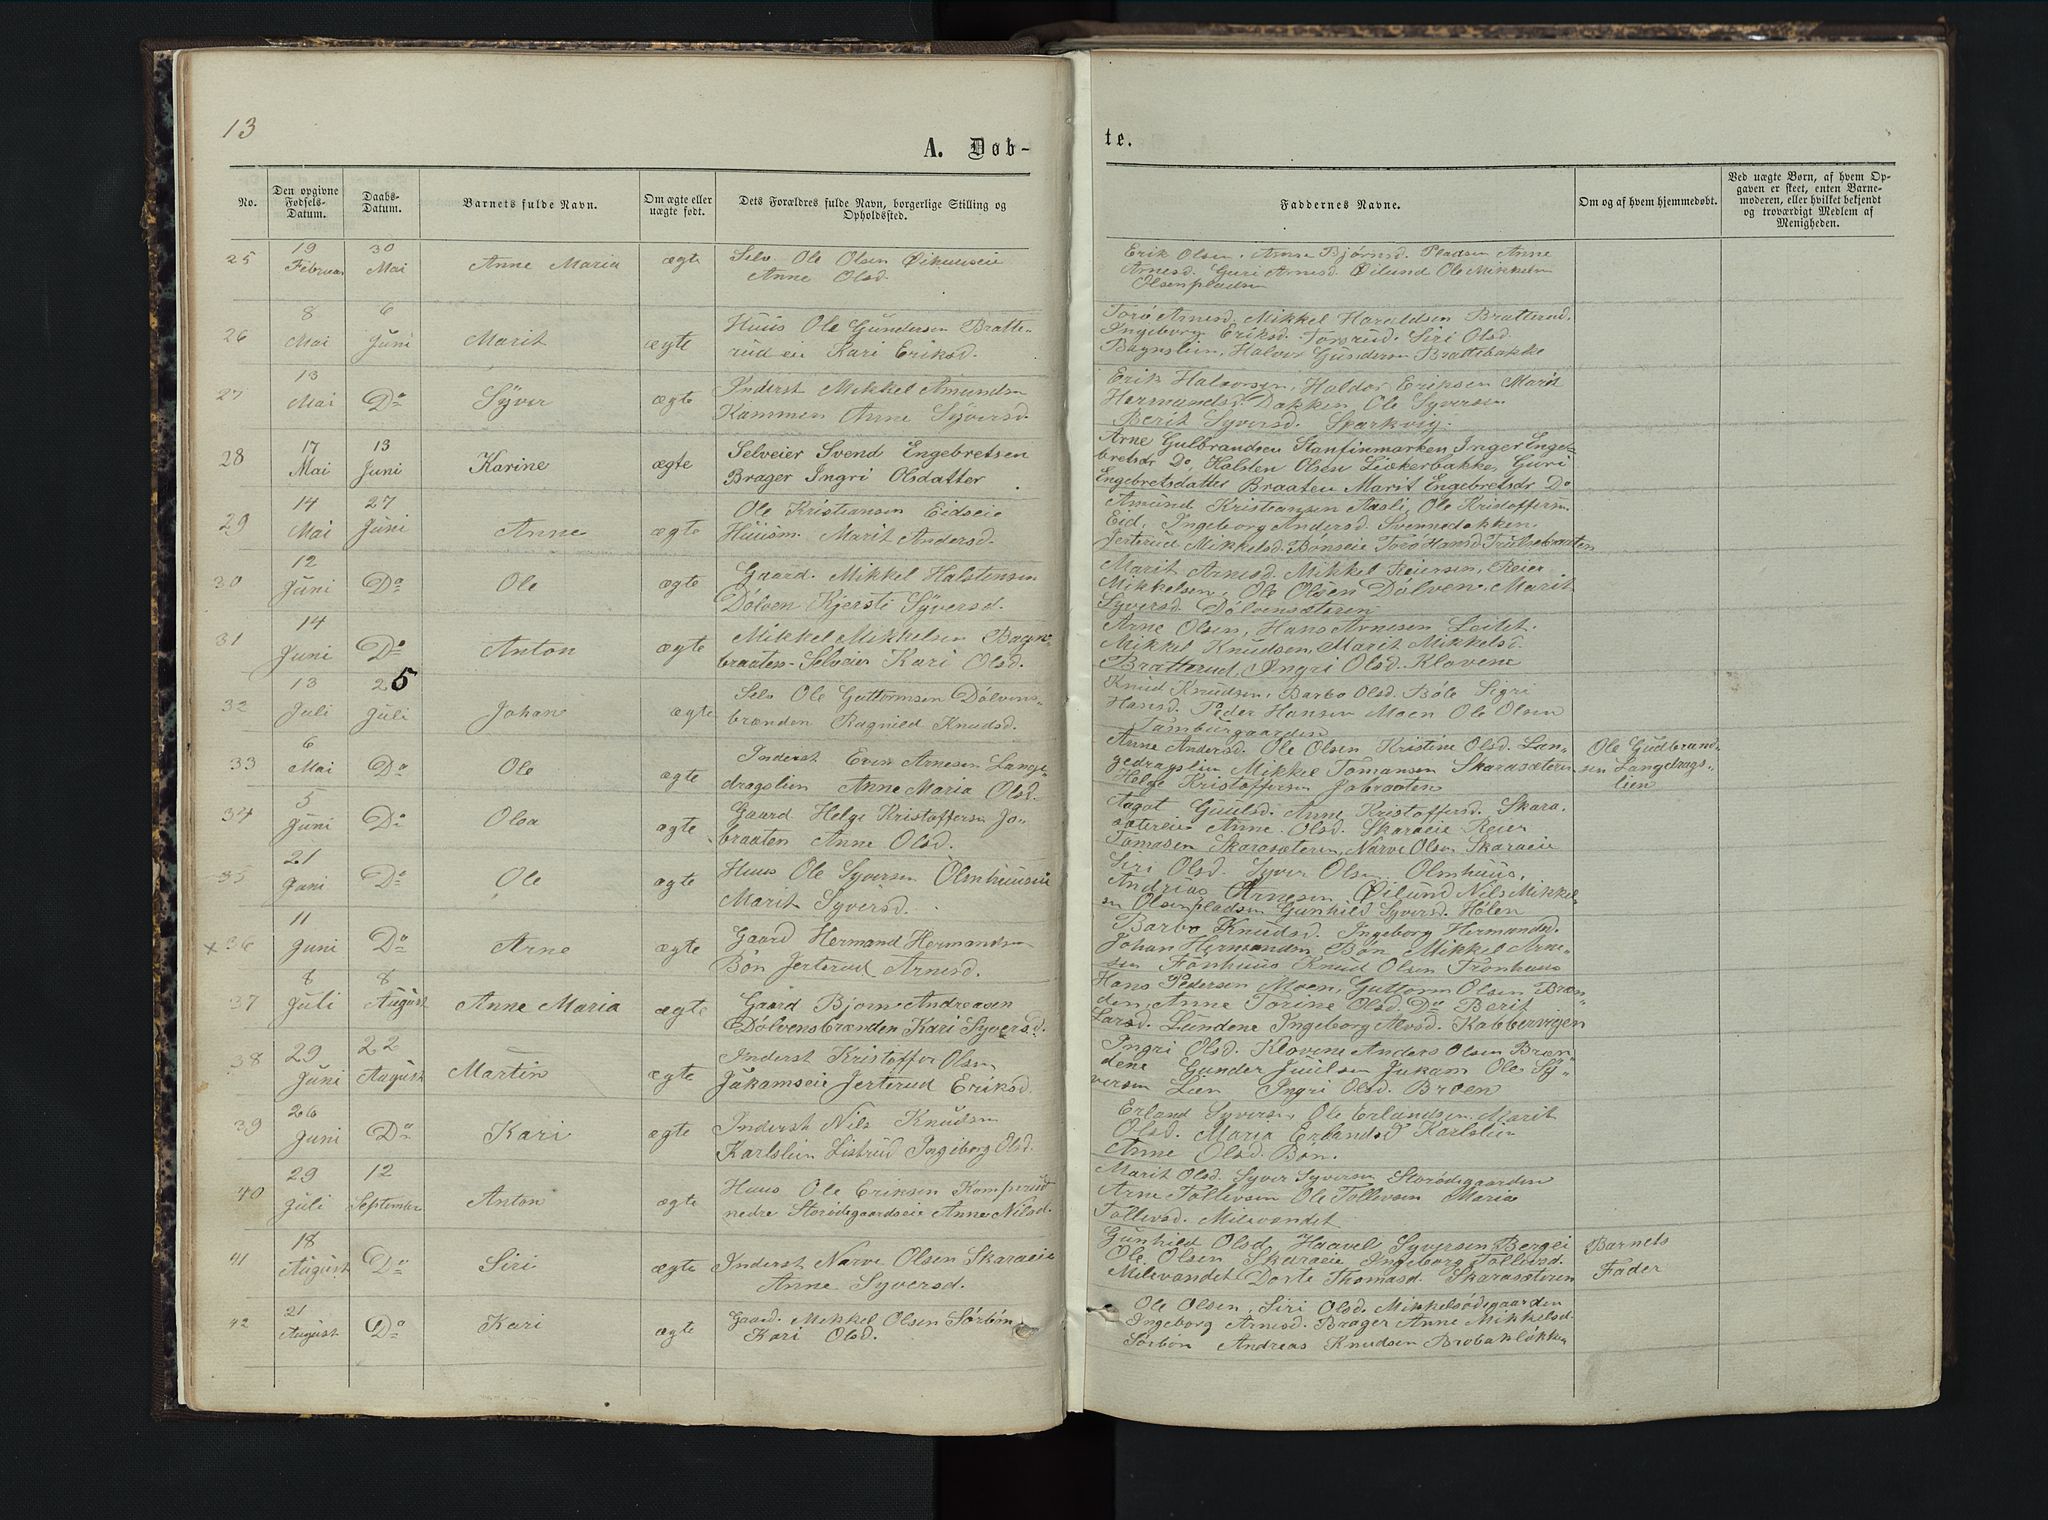 13
A. Døb-
te.
No.
Den opgivne Fødsels-Datum.
Daabs-Datum.
Barnets fulde Navn.
Om ægte eller uægte født.
Dets Forældres fulde Navn, borgerlige Stilling og Opholdssted.
Faddernes Navne.
Om og af hvem hjemmedøbt.
Ved uægte Børn, af hvem Opgaven er skeet, enten Barnemoderen, eller hvilket bekjendt og troværdigt Medlem af Menigheden.
25 19 Februar 30 Mai Anne Maria ægte Selv Ole Olsen Øilundseie
Anne Olsd.
Erik Olsen, Arne Bjørnsd. Pladsen Anne
Arnesd. Guri Arnesd. Øilund Ole Mikkelsen
Olsenpladsen
26 8 Mai 6 Juni Marit ægte Huus Ole Gundersen Bratte-
rud eie Kari Eriksd.
Torø Arnesd. Mikkel Haraldsen Bratterud,
Ingeborg Eriksd. Torsrud. Siri Olsd.
Bagnslien, Halvor Gundersen Brattebakke
27 13 Mai Do Syver ægte Inderst Mikkel Amundsn
Kammen Anne Syversd.
Erik Halvorsen, Haldor Eriksen Marit
Hermandsd. Dokken Ole Syversen
Berit Syversd. Sparkvig.
28 17 Mai 13 Juni Karine ægte Selveier Svend Engebretsen
Brager Ingri Olsdatter
Arne Gulbrandsen Stanfinmarken Inger Enge-
bretsdr Do, Halsten Olsen Leikerbakke, Guri
Engebretsdatter Braaten Marit Engebretsdr Do
29 14 Mai 27 Juni Anne ægte Ole Kristiansen Eidseie
Huusm. Marit Andersd.
Amund Kristiansen Aasli, Ole Kristoffersn
Eid, Ingeborg Andersd. Svennedokken.
Jertrud Mikkelsd. Bønseie Torø Hansd. Trulsebraaten
30 12 Juni Do Ole ægte Gaard. Mikkel Halstensen
Dølven Kjersti Syversd.
Marit Arnesd. Mikkel Reiersen, Reier
Mikkelsen, Ole Olsen Dølven. Marit
Syversd. Dølvensæteren
31 14 Juni Do Anton ægte Mikkel Mikkelsen Bagn-
braaten- Selveier Kari Olsd.
Arne Olsen, Hans Arnesen Leitet.
Mikkel Knudsen, Marit Mikkelsd.
Bratterud, Ingri Olsd. Klovene
32 13 Juli 25 Juli Johan ægte Selv Ole Guttormsen Dølvens-
brænden Ragnild Knudsd.
Knud Knudsen, Barbo Olsd. Bøle Sigri
Hansd. Peder Hansen Moen Ole Olsen
Tamburgaarden
33 6 Mai Do Ole ægte Inderst Erik Arnesen Lange-
dragslien Anne Maria Olsd.
Anne Andersd. Ole Olsen Kristine Olsd. Lan-
gedragslien Mikkel Tomansen Skarasæteren
Helge Kristoffersen Jobraaten
Ole Gudbrand-
sen Langdrags-
lien
34 5 Juni Do Olea ægte Gaard. Helge Kristoffersn Jo-
braaten Anne Olsd.
Aagot Guulsd. Anne Kristoffersd. Skara-
sætereie Anne Olsd. Skaraeie Reier
Tomasen Skarasæteren, Narve Olsen Skaraeie
35 21 Juni Do Ole ægte Huus Ole Syversen Olmhuuseie
Marit Syversd.
Siri Olsd. Syver Olsen Olmhuus,
Andrias Arnesen Øilund Nils Mikkel-
sn Olsenpladsen Gunhild Syversd. Hølen
x 36 11 Juni Do Arne ægte Gaard Hermand Hermandsn
Bøn Jertrud Arnesd.
Barbo Knudsd. Ingeborg Hermandsd.
Johan Hermandsn Bøn, Mikkel Arne-
sen Fønhuus Knud Olsen Fronhuus
37 8 Juli 8 August Anne Maria ægte Gaard Bjørn Andreasen
Dølvensbrænden Kari Syversd.
Hans Pedersen Moen, Guttorm Olsen Bræn-
den, Anne Torine Olsd. Do Berit
Larsd. Lundene Ingeborg Alvsd. Kabbervigen
38 29 Juni 22 August Martin ægte Inderst Kristoffer Olsen
Jukamseie Jertrud Eriksd.
Ingri Olsd. Klovene Anders Olsen Bræn-
dene Gunder Juulsen Jukam Ole Sy-
versen Lien Ingri Olsd. Broen
39 26 Juni Do Kari ægte Inderst Nils Knudsn
Karlslien Listrud Ingeborg Olsd.
Erland Syversn, Ole Erlandsen. Marit
Olsd. Maria Erlandsd. Karlslien
Anne Olsd. Bøn.
40 29 Juli 12 September Anton ægte Huus Ole Eriksen Komperud
nedre Storødegaardseie Anne Nilsd.
Marit Olsd. Syver Syversn Storødegaarden
Arne Tollevsen Ole Tollevsen Maria
Tollevsd. Milevandet
41 18 August Do Siri ægte Inderst Narve Olsen Skaraeie
Anne Syversd.
Gunhild Olsd. Haavel Syversen Bergei
Ole Olsen Skaraeie Ingeborg Tollevsd.
Milevandet Dorte Thomasd. Skarasæteren
Barnets
Fader
42 21 August Do Kari ægte Gaard. Mikkel Olsen Sørbøn
Kari Olsd.
Ole Olsen, Siri Olsd. Mikkelsødegaarden
Ingeborg Arnesd. Brager Anne Mikkelsd.
Sørbøn Andreas Knudsen Brobakløkken